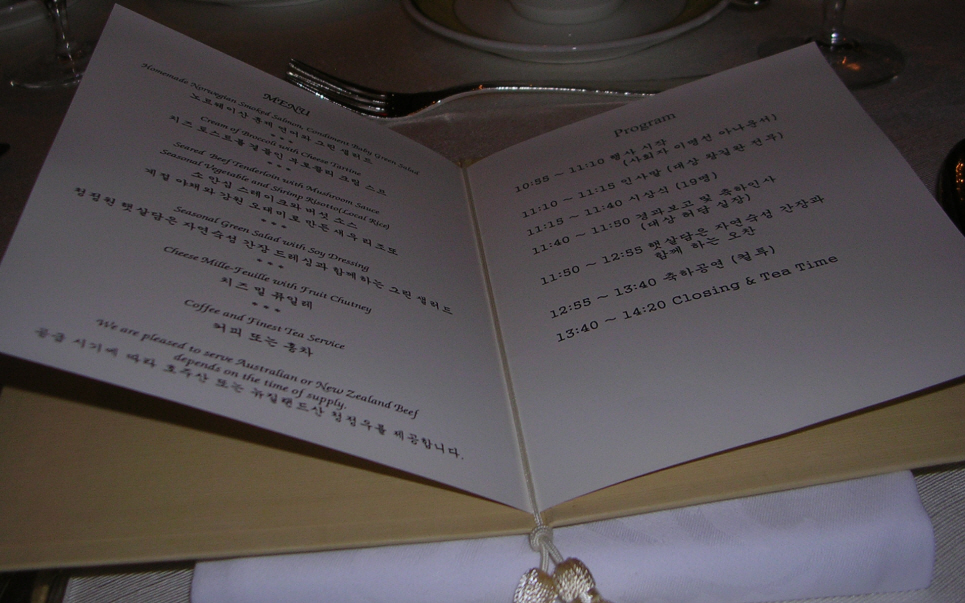 MENU
Homemade Norwegian Smoked Salmon, Condiment Baby Green Salad
노르웨이산 훈제 연어와 그린 샐러드
***
Cream of Broccoli with Cheese Tartine
치즈 토스트를 곁들인 부로콜리 크림 스프
***
Seared Beef Tenderloin with Mushroom Sauce
Seasonal Vegetable and Shrimp Risotto(Local Rice)
소 안심 스테이크와 버섯 소스
계절 야채와 강원 오대미로 만든 새우 리조또
***
Seasonal Green Salad with Soy Dressing
청정원 햇살담은 자연숙성 간장 드레싱과 함께하는 그린 샐러드
***
Cheese Mille-Feuille with Fruit Chutney
치즈 밀 퓨일레
***
Coffee and Finest Tea Service
커피 또는 홍차
We are pleased to serve Australian or New Zealand Beef
depends on the time of supply.
공급 시기에 따라 호주산 또는 뉴질랜드산 청정우를 제공합니다.
Program
10:55 ~ 11:10 행사 시작
(사회자 이명선 아나운서)
11:10 ~ 11:15 인사말 (대상 전무)
11:15 ~ 11:40 시상식 (19명)
11:40 ~ 11:50 경과보고 및 축하인사
(대상 허담 실장)
11:50 ~ 12:55 햇살담은 자연숙성 간장과
함께 하는 오찬
12:55 ~ 13:40 축하공연 (컬투)
13:40 ~ 14:20 Closing & Tea Time